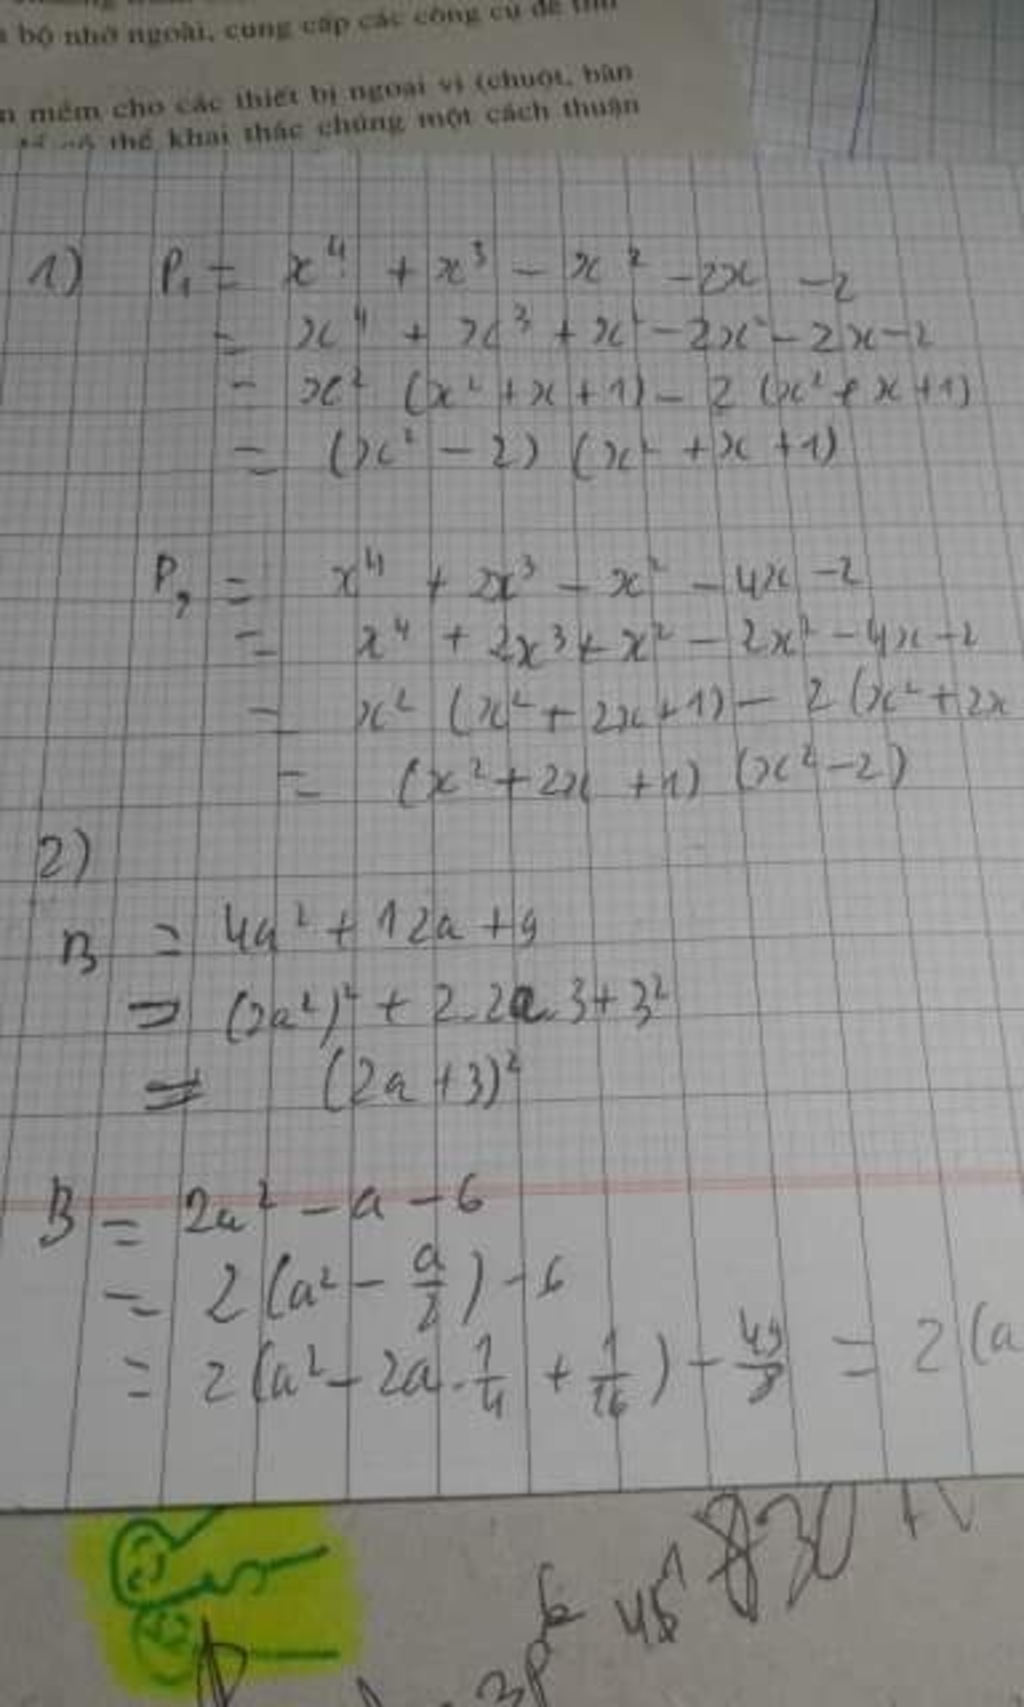 bộ nhớ ngoài, cung cấp các công cụ để tìm
mềm cho các thiết bị ngoại vi (chuột, bàn
thể khai thác chúng một cách thuận
1) P₁ = x⁴ + x³ - x² - 2x - 2
= x⁴ + x³ + x² - 2x² - 2x - 2
= x² (x² + x + 1) - 2 (x² + x + 1)
= (x² - 2) (x² + x + 1)
P₂ = x⁴ + 2x³ - x² - 4x - 2
= x⁴ + 2x³ + x² - 2x² - 4x - 2
= x² (x² + 2x + 1) - 2 (x² + 2x
= (x² + 2x + 1) (x² - 2)
2)
B = 4a² + 12a + 9
= (2a²)² + 2.2a.3 + 3²
= (2a + 3)²
B = 2a² - a - 6
= 2 (a² - a/2) - 6
= 2 (a² - 2a . 1/4 + 1/16) - 49/8 = 2 (a
830